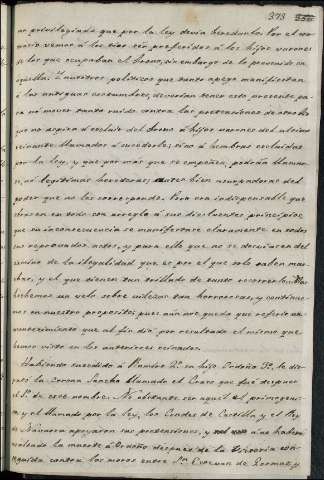 373
no privilegiada que por la ley devia heredarlos por el con-
trario vemos á los tios ser preferidos á los hijos varones
de los que ocupaban el trono, sin embargo de lo prevenido en
aquella. Y nuestros politicos que tanto apego manifiestan
á las antiguas costumbres, devian tener esto presente pa-
ra no mover tanto ruido contra las pretensiones de
que no aspira á excluir del trono á hijos varones del ultimo
reinante llamados á sucederle, sino á hembras excluidas
por la ley, y que por mas que se empeñen, podrán llamar-
se, nó legitimas herederas, antes bien usurpadoras del
poder que no les corresponde. Pero era indispensable que
obrasen en todo con arreglo á sus disolventes principios
que su inconsecuencia se manifestase claramente en todos
sus reprovados actos, y para ello que no se desviasen del
camino de la ilegalidad que es por el que solo saben mar-
char, y el que tienen tan trillado de tanto recorrerlo. Mas
echemos un velo sobre tantos horrores, y continue-
mos en nuestro proposito, pues aún me queda que referir un
acontecimiento que al fin dió por resultado el mismo que
hemos visto en los anteriores reinados.
Habiendo sucedido á Ramiro 2º su hijo Ordoño 3º le dis-
putó la corona Sancho llamado el Craso que fue despues
1º de este nombre. No obstante ser aquel el primogeni-
to y el llamado por la ley, los Condes de Castilla y el Rey
de Navarra apoyaron sus pretensiones, y aún haber
venido la muerte á Ordoño despues de la victoria con-
seguida contra los moros entre Sn Estevan de Gormaz, y